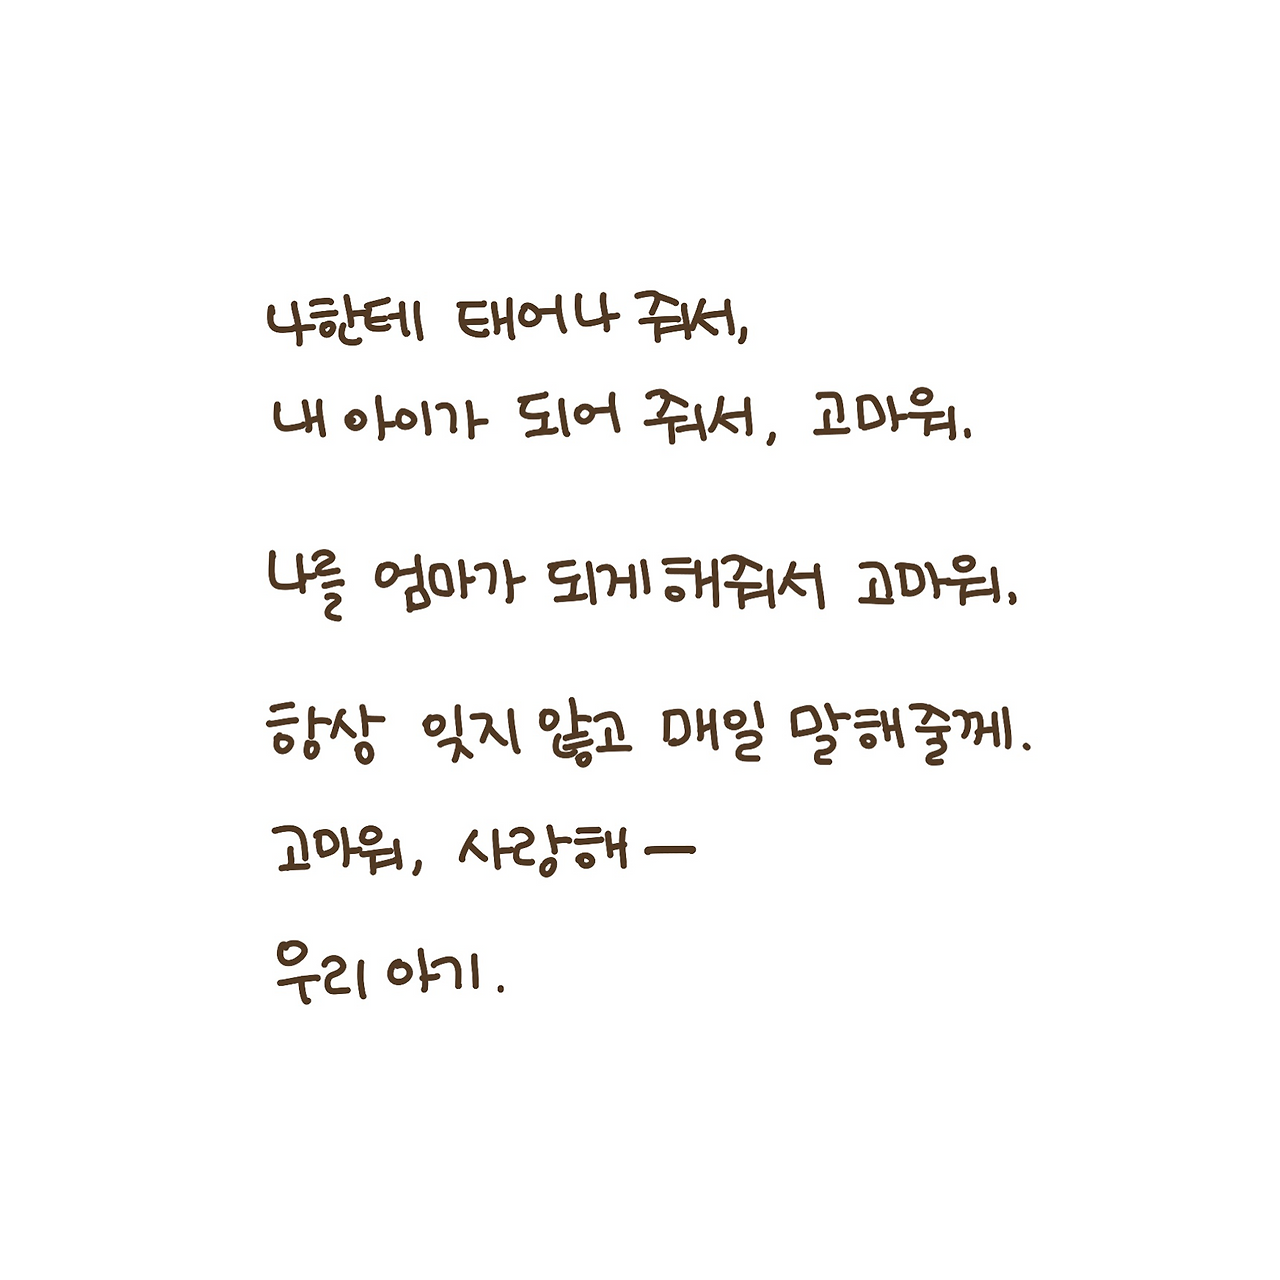 나한테 태어나 줘서,
내 아이가 되어 줘서, 고마워.
나를 엄마가 되게 해줘서 고마워.
항상 잊지 않고 매일 말해줄께.
고마워, 사랑해 —
우리 아기.